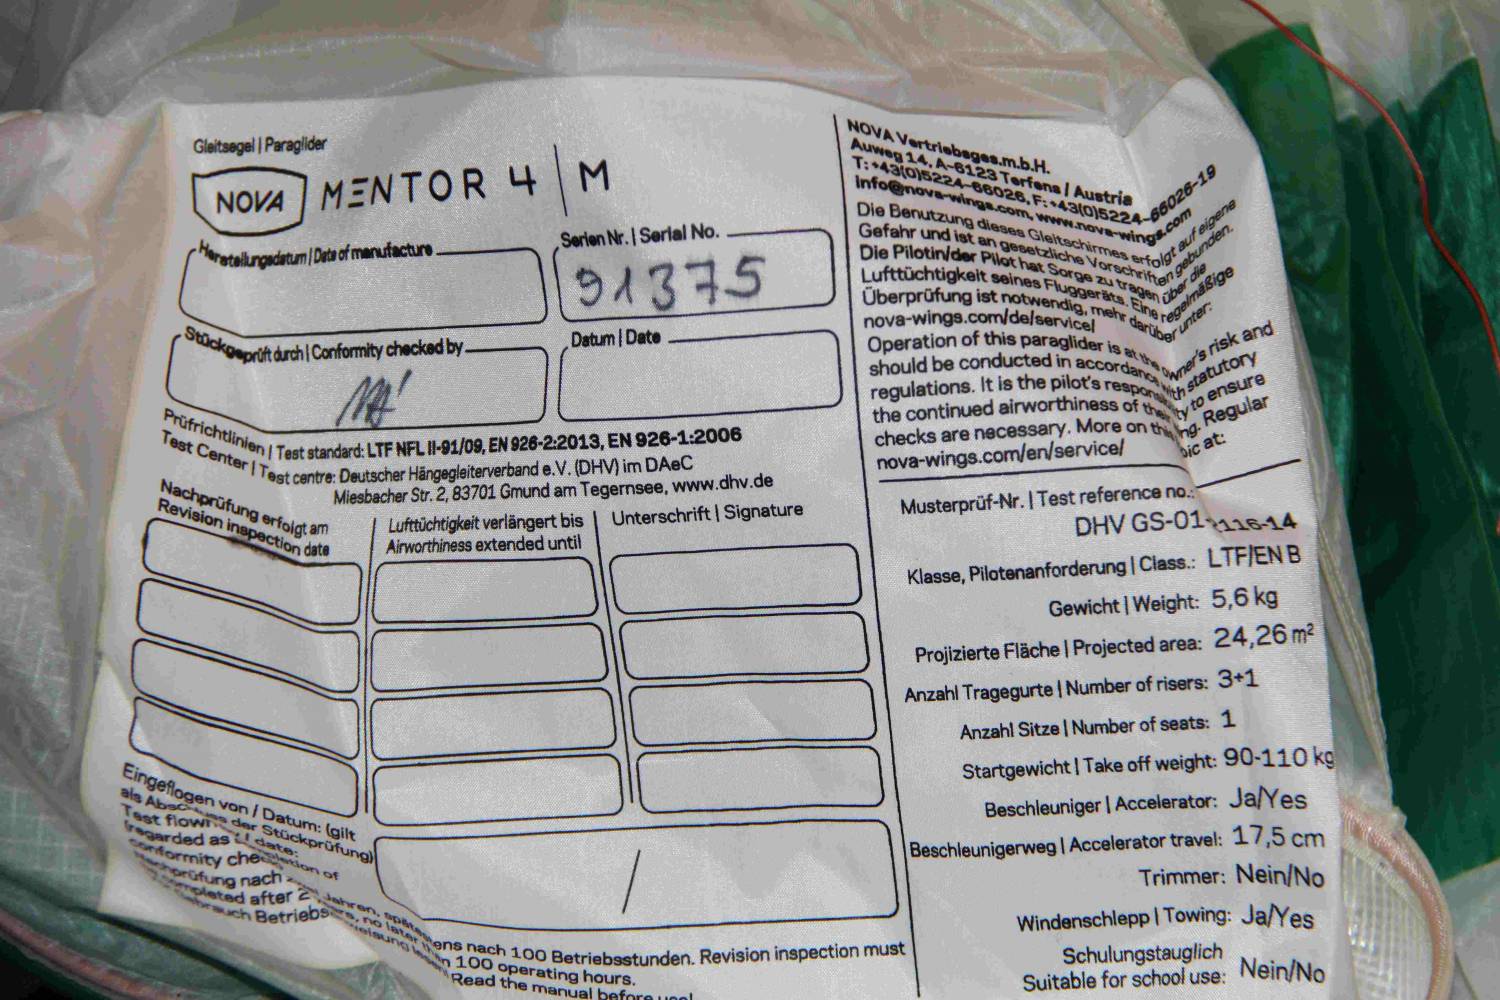 Gleitsegel | Paraglider
NOVA MENTOR 4 | M
Herstellungsdatum | Date of manufacture
Serien Nr. | Serial No.
91375
Stückgeprüft durch | Conformity checked by
Datum | Date
Prüfrichtlinien | Test standard: LTF NFL II-91/09, EN 926-2:2013, EN 926-1:2006
Test Center | Test centre: Deutscher Hängegleiterverband e.V. (DHV) im DAeC
Miesbacher Str. 2, 83701 Gmund am Tegernsee, www.dhv.de
Nachprüfung erfolgt am
Revision inspection date
Lufttüchtigkeit verlängert bis
Airworthiness extended until
Unterschrift | Signature
Eingeflogen von / Datum: (gilt
als Abschluss der Stückprüfung)
Test flown / date:
(regarded as completion of
conformity
Nachprüfung nach Jahren, ens nach 100 Betriebsstunden. Revision inspection must
completed after 2 no later 100 operating hours.
Read the manual before use!
NOVA Vertriebsges.m.b.H.
Auweg 14, A-6123 Terfens / Austria
T: +43(0)5224-66026, F: +43(0)5224-66026-19
info@nova-wings.com, www.nova-wings.com
Die Benutzung dieses Gleitschirmes erfolgt auf eigene
Gefahr und ist an gesetzliche Vorschriften gebunden.
Die Pilotin/der Pilot hat Sorge zu tragen über die
Lufttüchtigkeit seines Fluggeräts. Eine regelmäßige
Überprüfung ist notwendig, mehr darüber unter:
nova-wings.com/de/service/
Operation of this paraglider is at the owner's risk and
should be conducted in accordance with statutory
regulations. It is the pilot's to ensure
the continued airworthiness of Regular
checks are necessary. More on at:
nova-wings.com/en/service/
Musterprüf-Nr. | Test reference no.:
DHV GS-01-116-14
Klasse, Pilotenanforderung | Class.: LTF/EN B
Gewicht | Weight: 5,6 kg
Projizierte Fläche | Projected area: 24,26 m²
Anzahl Tragegurte | Number of risers: 3+1
Anzahl Sitze | Number of seats: 1
Startgewicht | Take off weight: 90-110 kg
Beschleuniger | Accelerator: Ja/Yes
Beschleunigerweg | Accelerator travel: 17,5 cm
Trimmer: Nein/No
Windenschlepp | Towing: Ja/Yes
Schulungstauglich
Suitable for school use: Nein/No